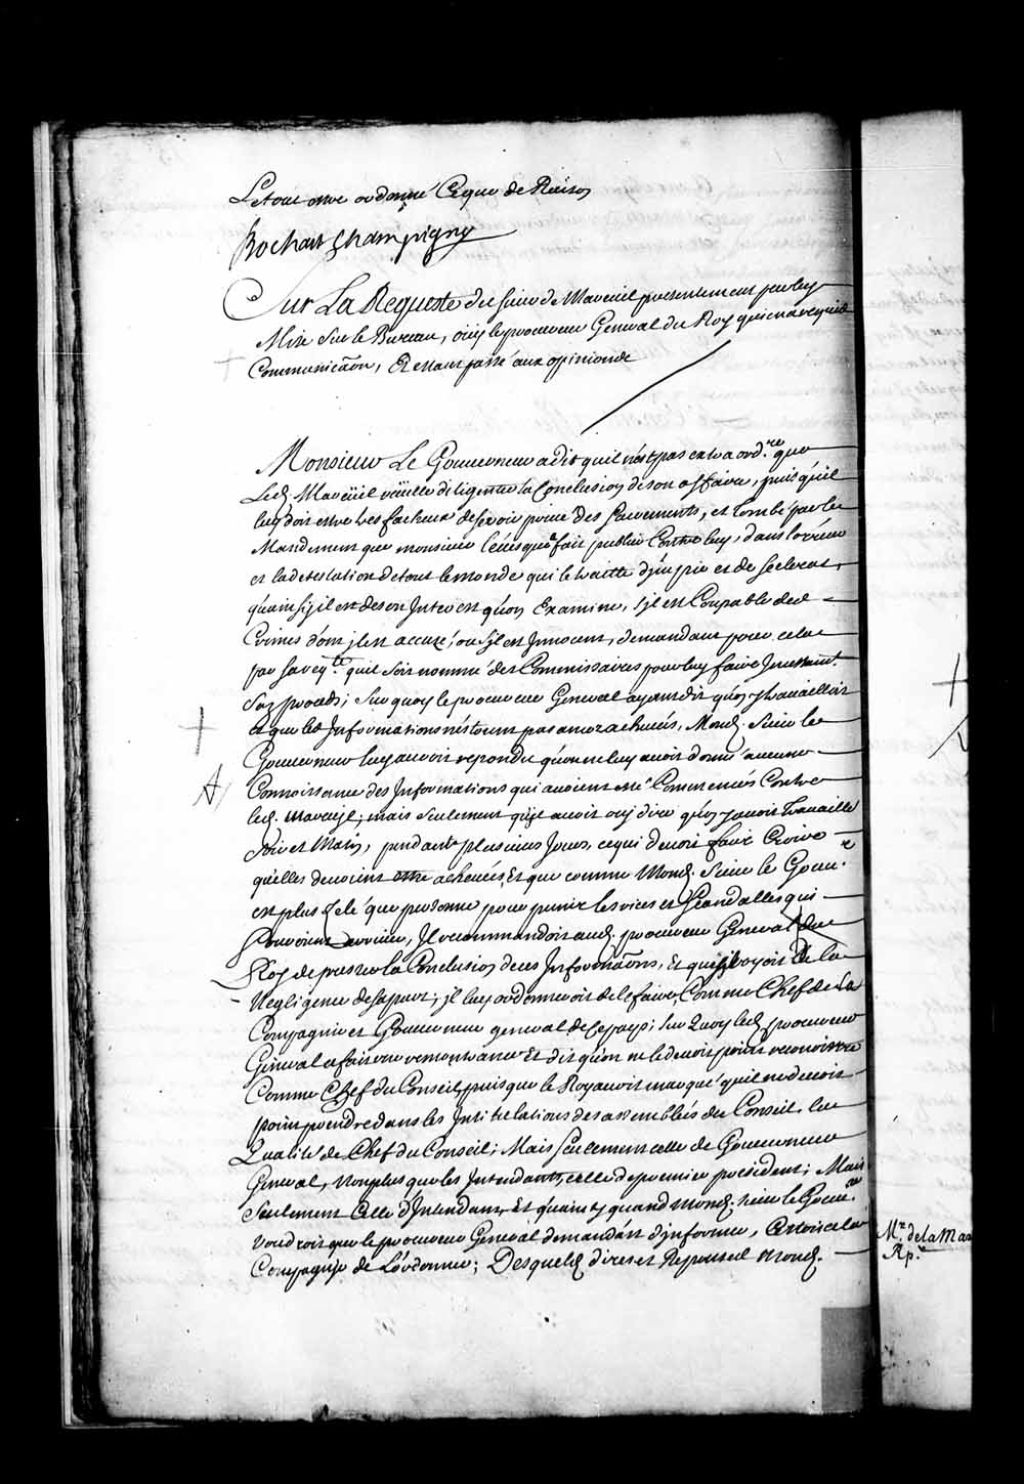 Le tout estre ordonné Ceque de Raison
Bochart Champigny
Sur La Requeste du sieur de Mareuil presentement par luy
Mise sur le Bureau, ouy le procureur General du Roy qui en a requis
Communicaõn, Et estant passé aux opinions de
Monsieur Le Gouverneur a dit quil n'est pas extraord.re que
Led. Mareüil veüille diligenter la Conclusion de son affaire, puis quil
luy doit estre tres facheux de se voir privé des Sacrements, et tombé par le
Mandement que monsieur l'Evesque a fait publier Contre luy, dans l'oreur
et la detestation de tout le monde qui le traitte d'jmpie et de scelerat,
qu'ainsy il est de son Interest qu'on Examine, s'jl est Coupable des
Crimes dont jl est accusé, ou s'jl est Innocent, demandant pour cela
par sa req.te quil soit nommé des Commissaires pour luy faire Incessam.t
son procedz; Sur quoy le procureur General ayant dit qu'on y travailloit
et que les Informations n'estoient pas encor achevées, Mond. Sieur le
Gouverneur luy auroit repondu qu'on ne luy avoit donné aucune
Connoissance des Informations qui avoient esté Commencées Contre
led. Mareuil; mais seulement qu'jl avoit ouy dire qu'on y avoit travaillé
soir et Matin, pendant plusieurs Jours, ce qui devoit faire Croire
qu'elles devoient estre achevées, Et que comme Mond. Sieur le Gouv.r
est plus Zelé que personne pour punir les vices et Scandalles qui
pouroient arriver, Il recommandoit aud. procureur General du
Roy de presser la Conclusion de ces Informaõns, Et que s'il voyoit de la
Negligence de sa part, jl luy ordonneroit de le faire Comme Chef de La
Compagnie et Gouverneur general de ce pays; Sur Quoy led. procureur
General a fait sur remontrance Et dit qu'on ne le devoit point reconoistre
Comme Chef du Conseil, puis que le Roy avoit marqué qu'il ne devoit
point prendre dans les Intitulations des assemblées du Conseil, la
Qualité de Chef du Conseil; Mais seulement celle de Gouverneur
General, Non plus que les Intendants, celle de premier president; Mais
seulement Celle d'Intendant, Et qu'ainsy quand mond. sieur le Gouv.r
voudroit que le procureur General demandast d'jnformer, C'estoit a la
Compagnie de L'ordonner; Desquels dires et Reponses Mond.
M.r de la Mar
Rp.r